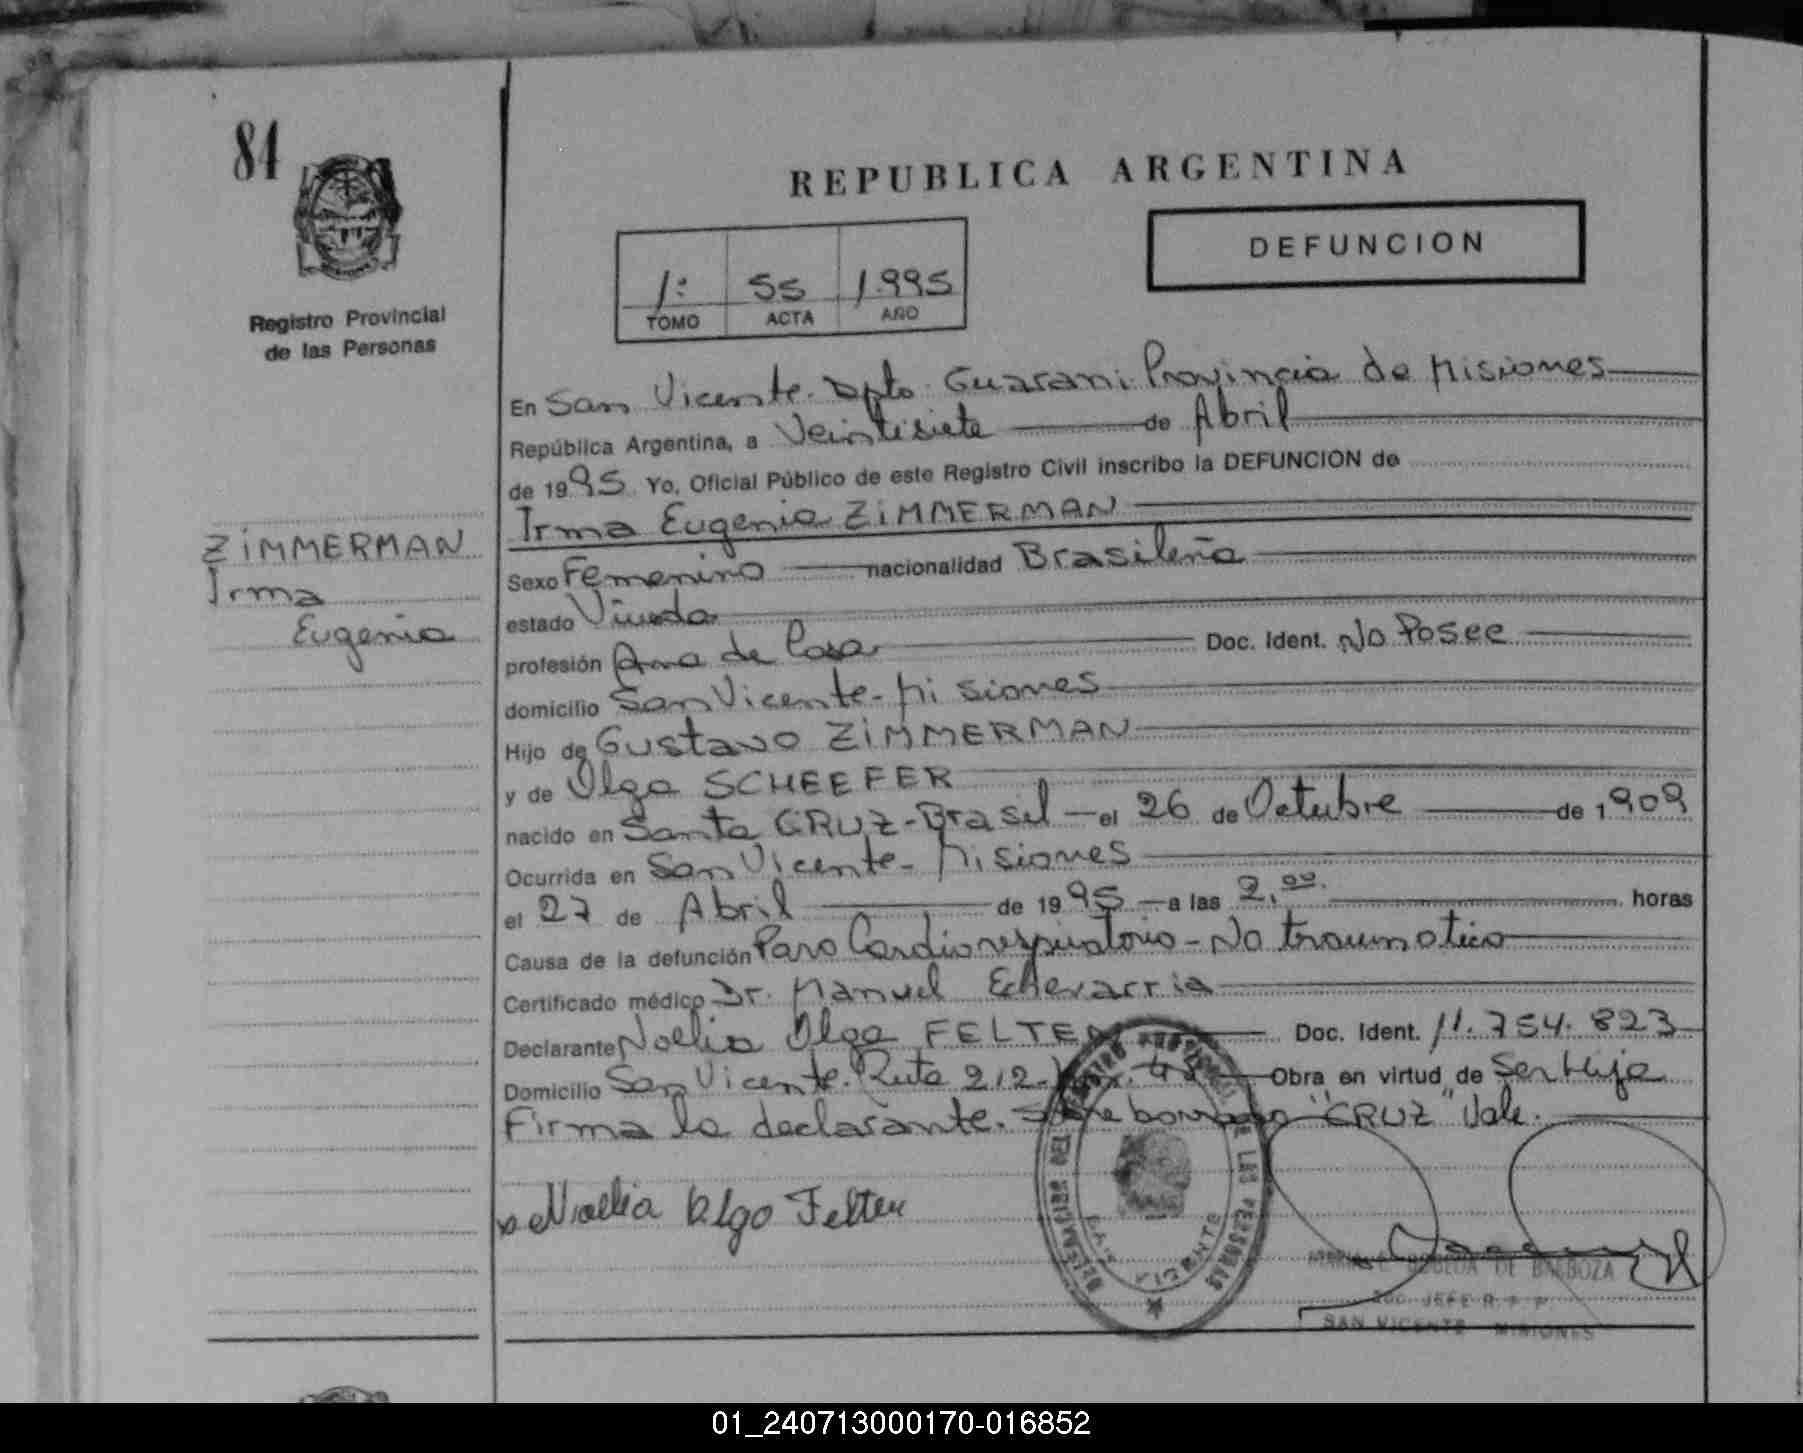 84
Registro Provincial
de las Personas
REPUBLICA ARGENTINA
DEFUNCION
1: 55 1.995
TOMO ACTA AÑO
En San Vicente. Dpto. Guarani. Provincia de Misiones
República Argentina, a Veintisiete de Abril
de 1995 Yo, Oficial Público de este Registro Civil inscribo la DEFUNCION de
Irma Eugenia ZIMMERMAN
ZIMMERMAN
Irma
Eugenia
Sexo Femenino nacionalidad Brasileña
estado Viuda
profesión Ama de Casa Doc. Ident. No Posee
domicilio San Vicente - Misiones
Hijo de Gustavo ZIMMERMAN
y de Olga SCHEEFER
nacido en Santa CRUZ - Brasil - el 26 de Octubre de 1909
Ocurrida en San Vicente - Misiones
el 27 de Abril de 1995 - a las 2,00 horas
Causa de la defunción Paro Cardiorespiratorio - No traumatico
Certificado médico Dr. Manuel Echevarria
Declarante Noelia Olga FELTEN Doc. Ident. 11.754.823
Domicilio San Vicente. Ruta 212. Obra en virtud de Ser Hija
Firma la declarante. Sobre borrado "CRUZ" Vale.
Noelia Olga Felten
REGISTRO PROVINCIAL DE LAS PERSONAS
DELEGACION
SAN VICENTE
DE BARBOZA
JEFE R. P. P.
SAN VICENTE MISIONES
01_240713000170-016852